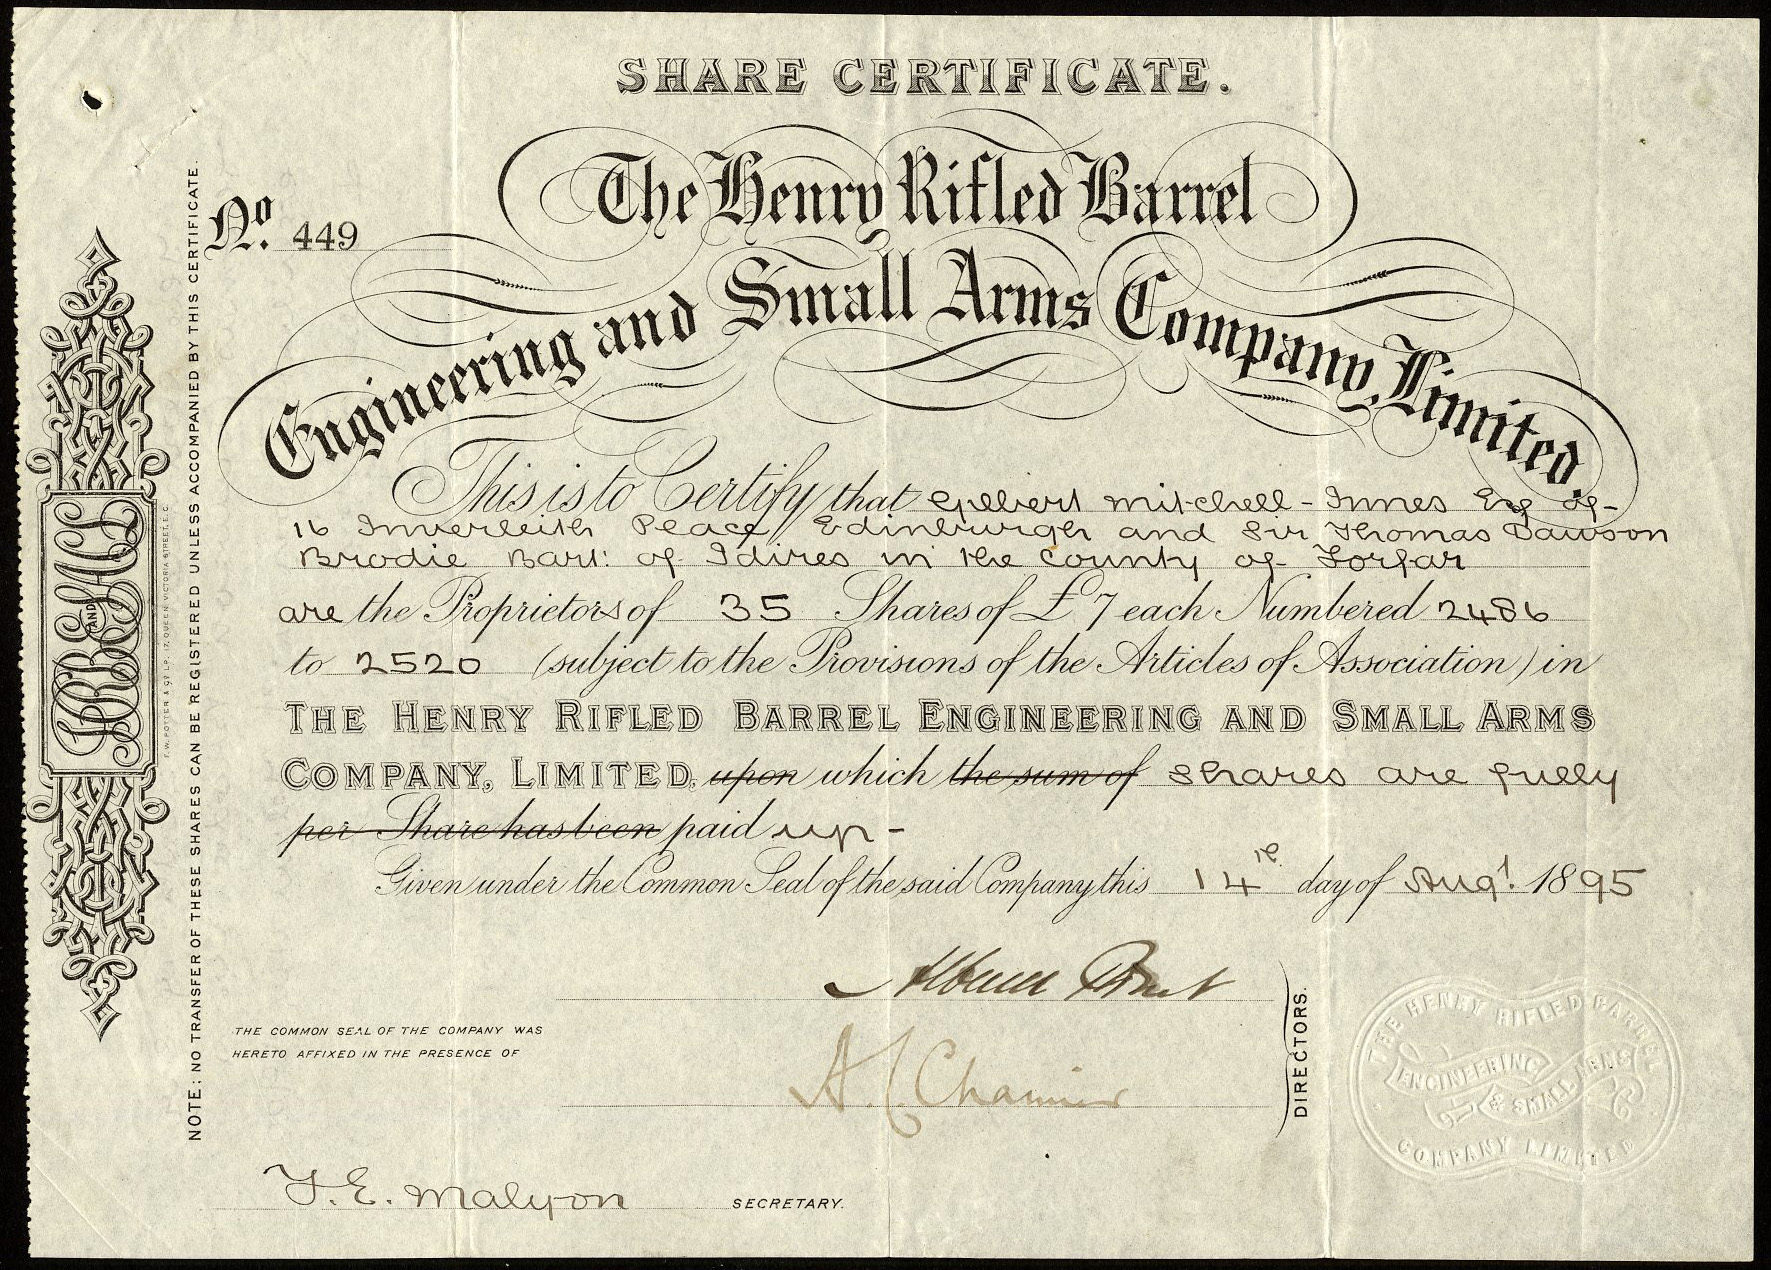 SHARE CERTIFICATE.
The Henry Rifled Barrel
Engineering and Small Arms Company, Limited.
No. 449
This is to Certify that Gilbert Mitchell-Innes Esq of
16 Inverleith Place, Edinburgh and Sir Thomas Dawson
Brodie Bart: of Idvies in the County of Forfar
are the Proprietors of 35 Shares of £7 each Numbered 2486
to 2520 (subject to the Provisions of the Articles of Association) in
THE HENRY RIFLED BARREL ENGINEERING AND SMALL ARMS
COMPANY, LIMITED, upon which the sum of shares are fully
per Share has been paid up -
Given under the Common Seal of the said Company this 14th day of Augt. 1895
THE COMMON SEAL OF THE COMPANY WAS
HERETO AFFIXED IN THE PRESENCE OF
A Chamier
DIRECTORS.
F. E. Malyon SECRETARY.
NOTE: NO TRANSFER OF THESE SHARES CAN BE REGISTERED UNLESS ACCOMPANIED BY THIS CERTIFICATE.
T. W. POTTER & Co LP. 17, QUEEN VICTORIA STREET, E.C.
AND
THE HENRY RIFLED BARREL
ENGINEERING
& SMALL ARMS
COMPANY LIMITED